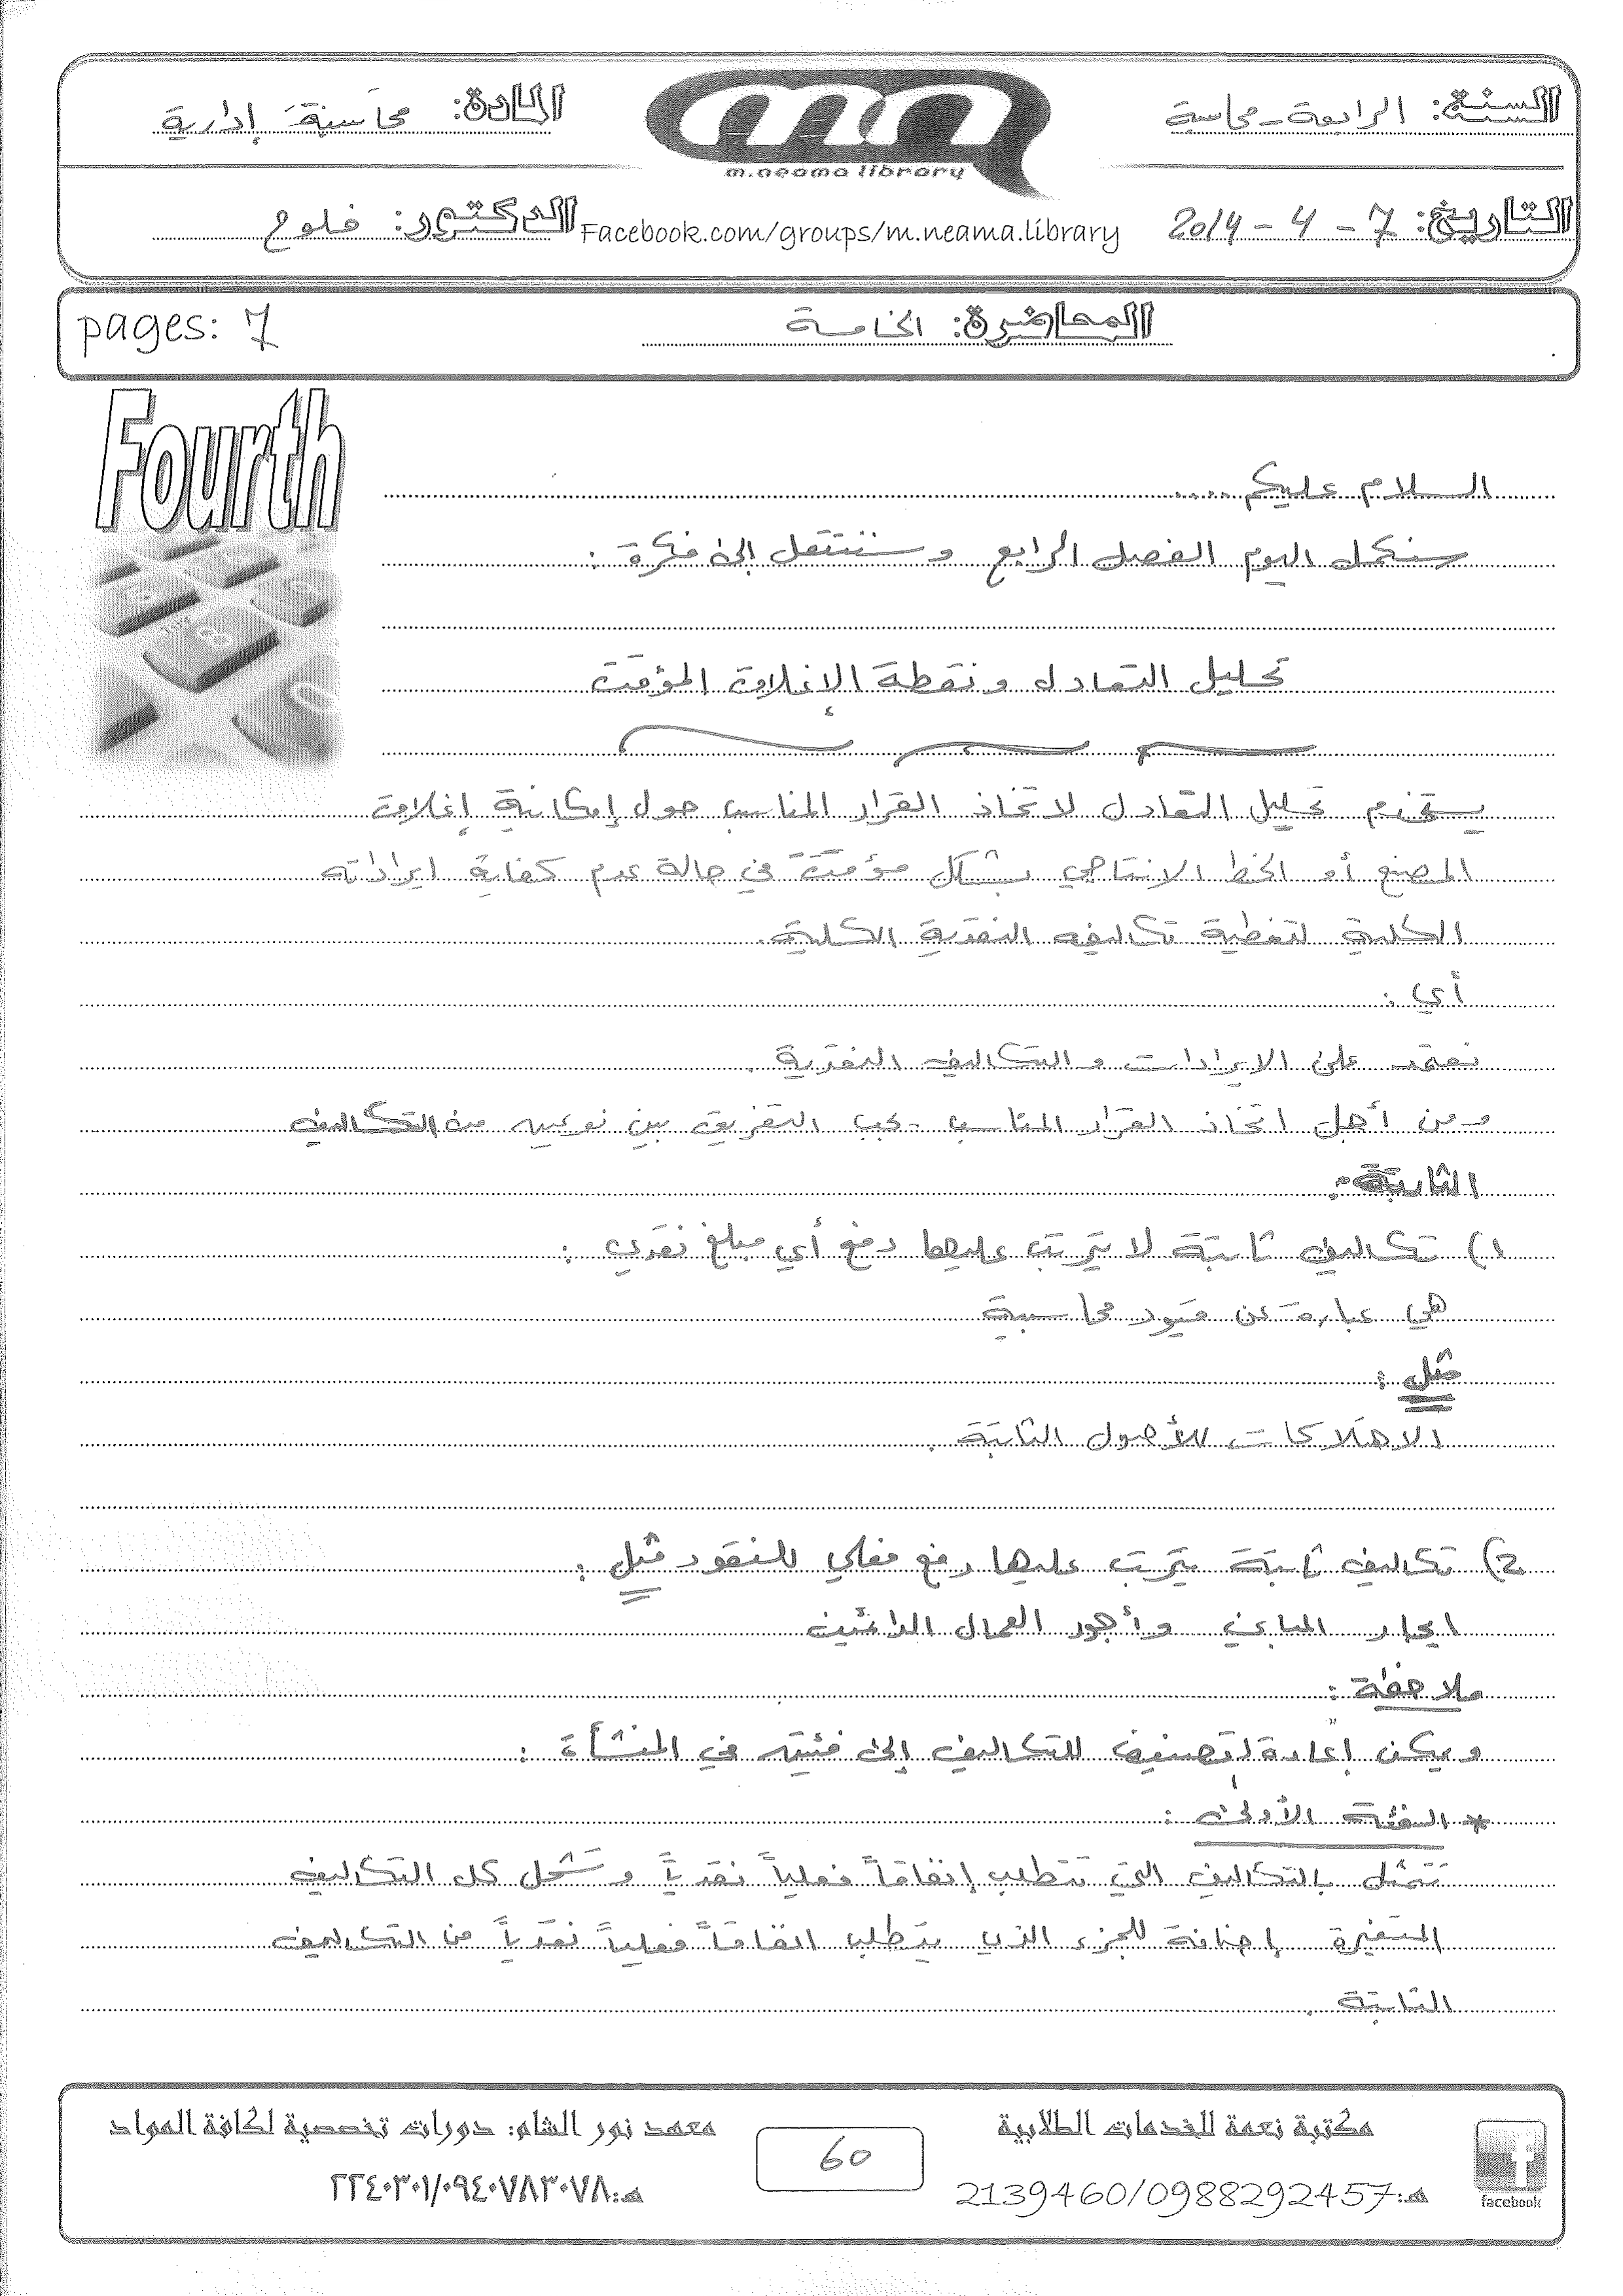 السنة: الرابعة - محاسبة
المادة: محاسبة إدارية
m.neama library
التاريخ: 7 - 4 - 2014
Facebook.com/groups/m.neama.library
الدكتور: فلوح
المحاضرة: الخامسة
pages: 7
Fourth
السلام عليكم ....
سنكمل اليوم الفصل الرابع وسننتقل إلى فكرة :
تحليل التعادل ونقطة الإغلاق المؤقت
يستخدم تحليل التعادل لاتخاذ القرار المناسب حول إمكانية إغلاق
المصنع أو الخط الانتاجي بشكل مؤقت في حالة عدم كفاية ايراداته
الكلية لتغطية تكاليفه النقدية الكلية.
أي :
نعتمد على الايرادات والتكاليف النقدية .
ومن أجل اتخاذ القرار المناسب يجب التفريق بين نوعين من التكاليف
الثابتة :
1) تكاليف ثابتة لا يترتب عليها دفع أي مبلغ نقدي :
هي عبارة عن قيود محاسبية
مثل :
الاهتلاكات للأصول الثابتة .
2) تكاليف ثابتة يترتب عليها دفع فعلي للنقود مثل :
ايجار المباني وأجور العمال الدائمين
ملاحظة :
ويمكن إعادة تصنيف للتكاليف إلى فئتين في المنشأة :
* الفئة الأولى :
تتمثل بالتكاليف التي تتطلب إنفاقاً فعلياً نقدياً وتشمل كل التكاليف
المتغيرة إضافة للجزء الذي يتطلب انفاقاً فعلياً نقدياً من التكاليف
الثابتة .
مكتبة نعمة للخدمات الطلابية
هـ: 2139460/0988292457
facebook
60
معهد نور الشام: دورات تخصصية لكافة المواد
هـ: ٢٢٤٠٣٠١/٠٩٤٠٧٨٣٠٧٨